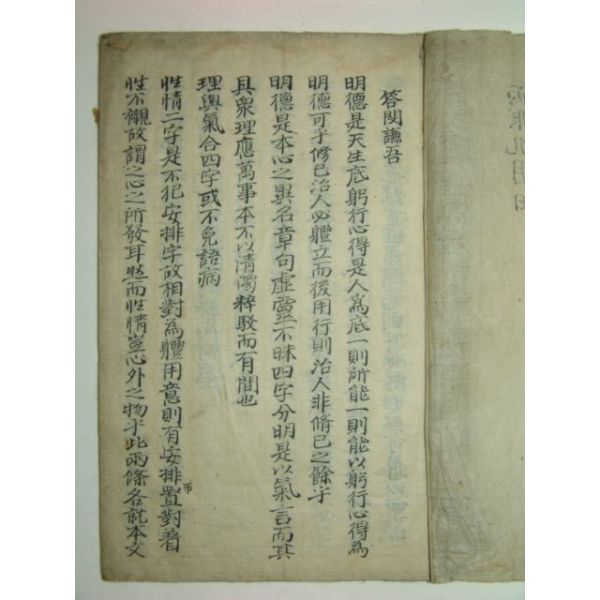 答閔謙吾
明德是天生底躬行心得是人爲底一則所能一則能以躬行心得爲
明德可乎修己治人必體立而後用行則治人非脩己之餘乎
明德是本心之異名章句虛靈不昧四字分明是以氣言而其
具衆理應萬事本不以淸濁粹駁而有間也
理與氣合四字或不免語病
性情二字是不犯安排字故相對為體用意則有安排置對看
性不襯故謂之心之所發耳然而性情豈心外之物乎此兩條各就本文